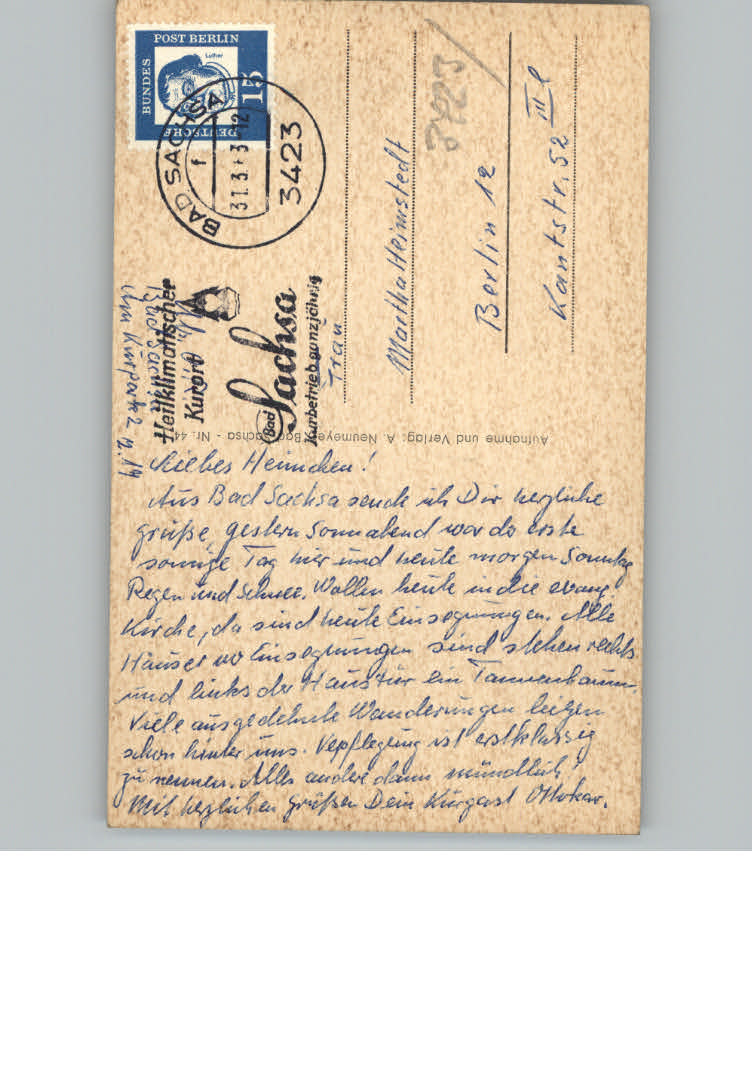 DEUTSCHE BUNDESPOST BERLIN
Luther
15
BAD SACHSA
f
31.3.63-12
3423
Heilklimatischer
Kurort
Bad Sachsa
Kurbetrieb ganzjährig
Bad Sachsa
Am Kurpark 2 z. 14
3423
Frau
Martha Heimstedt
Berlin 12
Kantstr. 52 III l
Aufnahme und Verlag: A. Neumeyer, Bad Sachsa - Nr. 44
Liebes Heimchen!
Aus Bad Sachsa sende ich Dir herzliche
Grüße, gestern Sonnabend war da erste
sonnige Tag hier und heute morgen Sonntag
Regen und Schnee. Wollen heute in die evang.
Kirche, da sind heute Einsegnungen. Alle
Häuser wo Einsegnungen sind stehen rechts
und links der Haustür ein Tannenbaum
Viele ausgedehnte Wanderungen liegen
schon hinter uns. Vepflegung ist erstklassig
zu nennen. Alles andere dann mündlich!
Mit herzlichen Grüßen Dein Kurgast Ottokar.